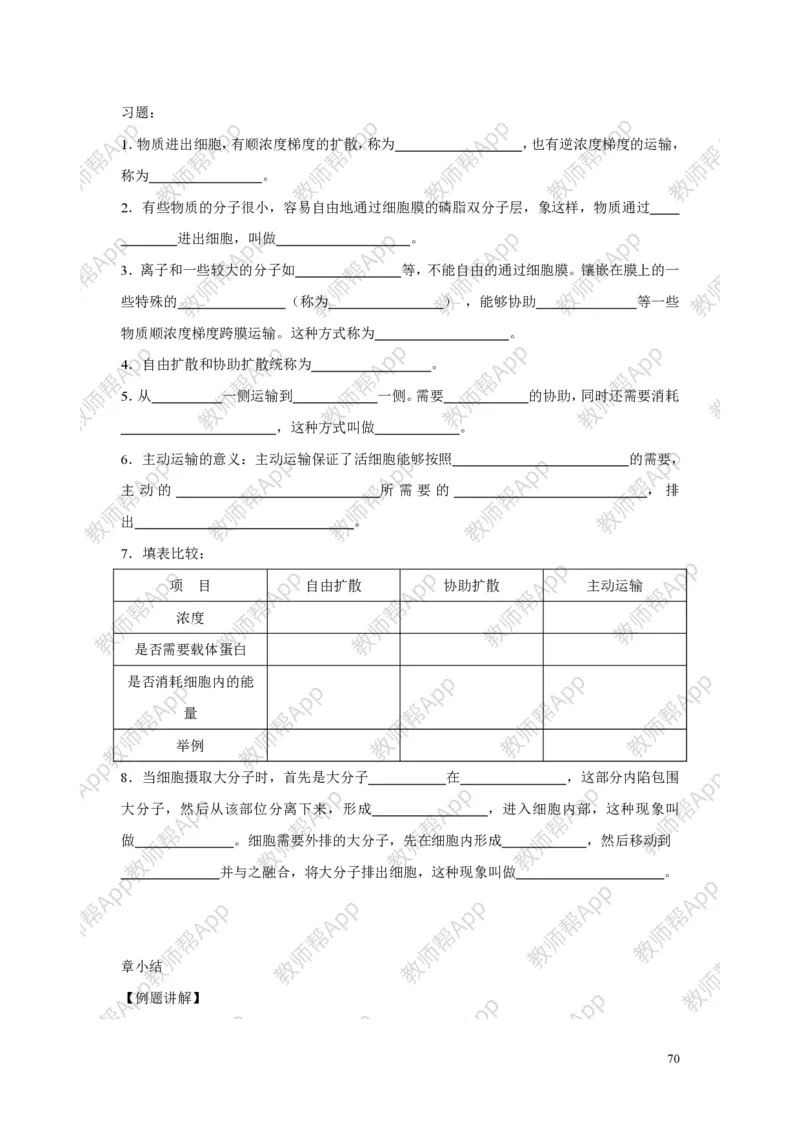 习题：
1. 物质进出细胞，有顺浓度梯度的扩散，称为__________________，也有逆浓度梯度的运输，
称为________________。
2．有些物质的分子很小，容易自由地通过细胞膜的磷脂双分子层，象这样，物质通过____
________进出细胞，叫做___________________。
3．离子和一些较大的分子如_______________等，不能自由的通过细胞膜。镶嵌在膜上的一
些特殊的_______________（称为________________），能够协助______________等一些
物质顺浓度梯度跨膜运输。这种方式称为___________________。
4．自由扩散和协助扩散统称为_________________。
5．从__________一侧运输到____________一侧。需要____________的协助，同时还需要消耗
______________________，这种方式叫做____________。
6．主动运输的意义：主动运输保证了活细胞能够按照_________________________的需要，
主动的_____________________________所需要的___________________________，排
出_______________________________。
7．填表比较：
项 目 自由扩散 协助扩散 主动运输
浓度
是否需要载体蛋白
是否消耗细胞内的能
量
举例
8．当细胞摄取大分子时，首先是大分子___________在_______________，这部分内陷包围
大分子，然后从该部位分离下来，形成________________，进入细胞内部，这种现象叫
做______________。细胞需要外排的大分子，先在细胞内形成____________，然后移动到
______________并与之融合，将大分子排出细胞，这种现象叫做_____________________。
章小结
【例题讲解】
70
教师帮App